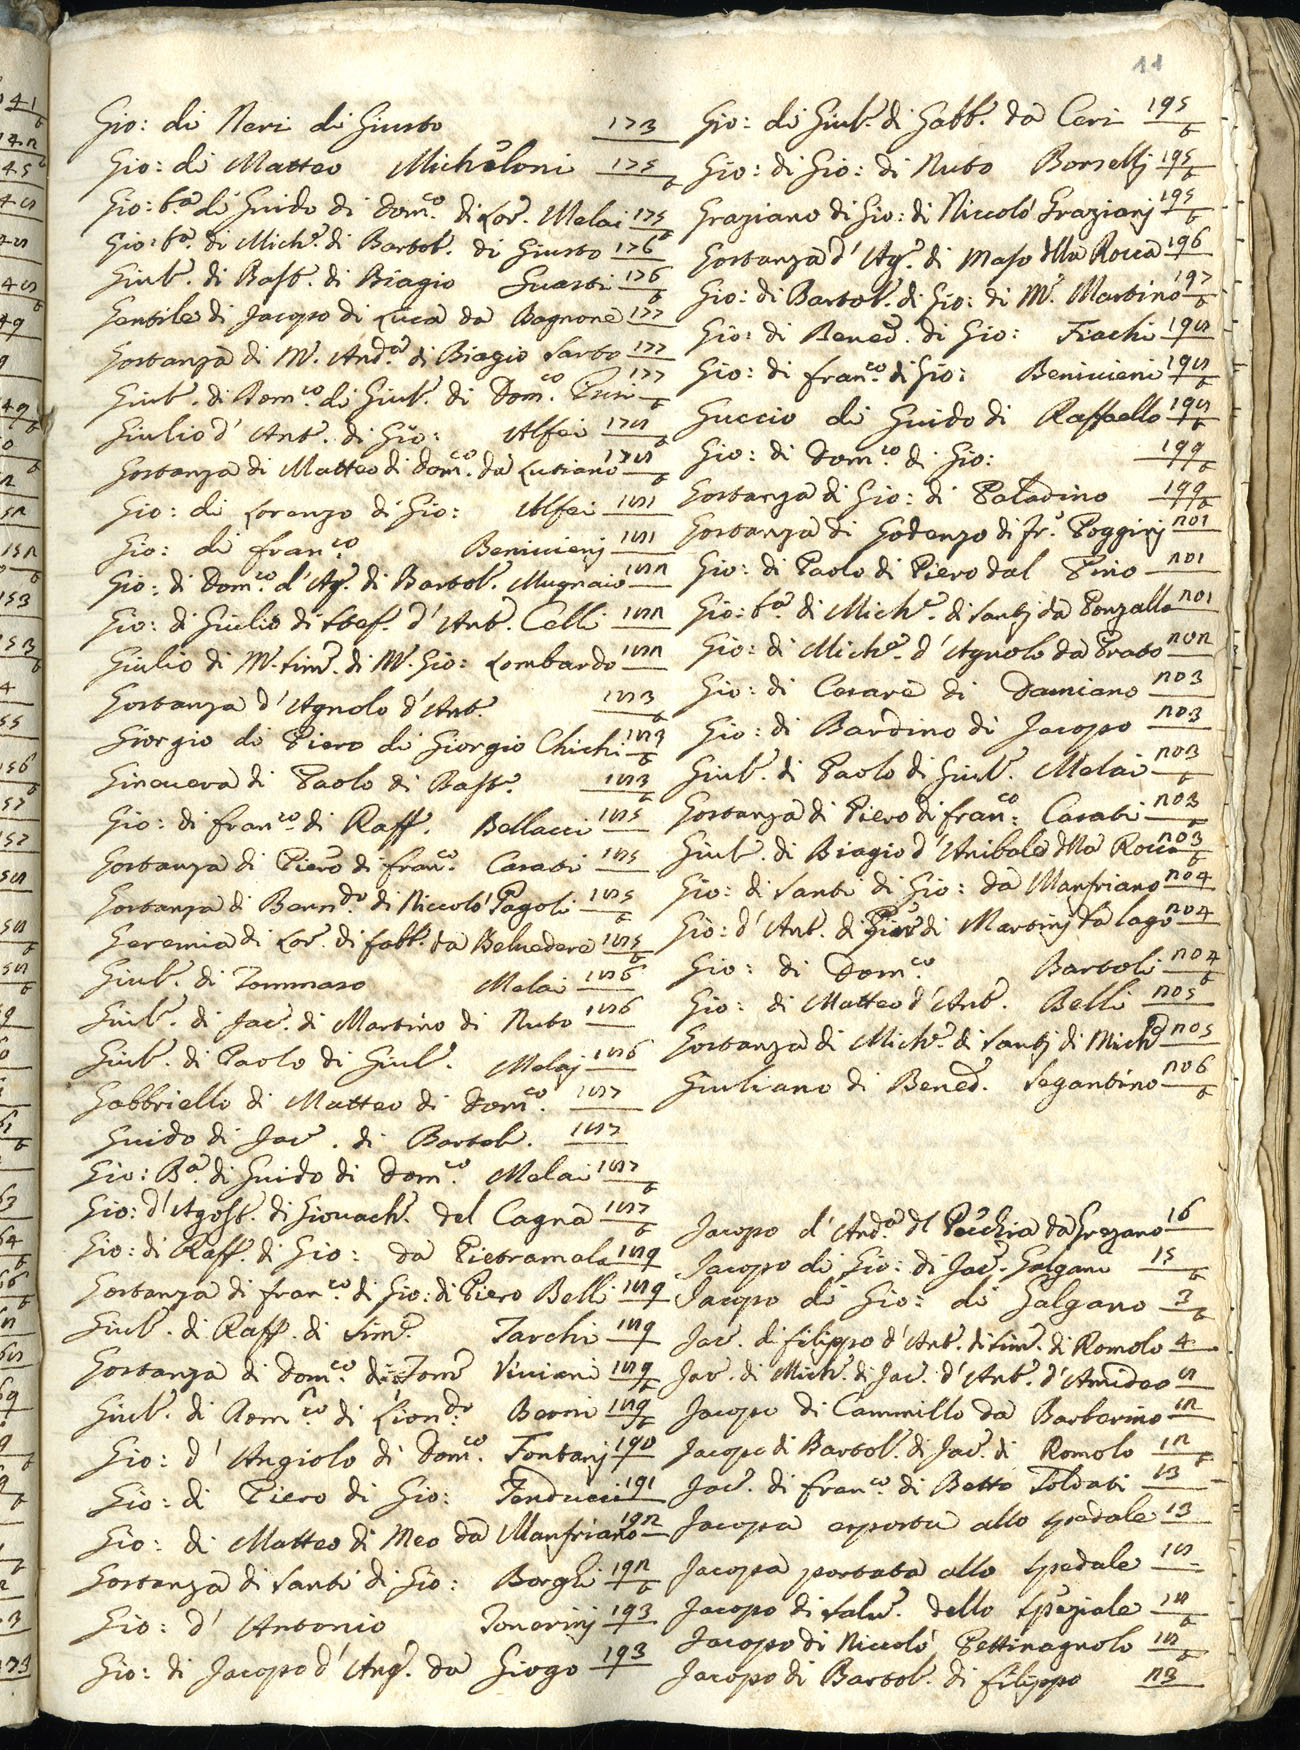 11
Gio: di Neri di Giusto 173
Gio: di Matteo Micheloni 175 t
Gio: bᵃ di Guido di Domᶜᵒ di Lorᵒ. Melai 175 t
Gio: bᵃ. di Michᵉ. di Bartolᵒ. di Giusto 176
Giulᵒ. di Bastᵒ. di Biagio Guasti 176 t
Gentile di Jacopo di Luca da Bagnone 177
Gostanza di Mᵒ. Andᵃ di Biagio Sarto 177
Giulᵒ. di Domᶜᵒ di Giulᵒ. di Domᶜᵒ 177 t
Giulio d' Antᵒ. di Gio: Alfei 178 t
Gostanza di Matteo di Domᶜᵒ da Lutiano 178 t
Gio: di Lorenzo di Gio: Alfei 181
Gio: di Franᶜᵒ Benivienj 181
Gio: di Domᶜᵒ d'Agᵒ. di Bartolᵒ. Mugnaio 182
Gio: di Giulio di Stefᵒ. d'Antᵒ. Celli 182
Giulio di Mᵒ. Simᵉ. di Mᵒ. Gio: Lombardo 182
Gostanza d'Agnolo d'Antᵒ. 183 t
Giorgio di Piero di Giorgio Chichi 183 t
Ginevera di Paolo di Bastᵒ. 183 t
Gio: di Franᶜᵒ di Raffᵒ. Bellacci 185
Gostanza di Piero di Franᶜᵒ. Casati 185
Gostanza di Bernᵈᵒ di Niccolò Pagoli 185 t
Geremia di Lorᵒ. di Fabbᵒ. da Belvedere 185 t
Giulᵒ. di Tommaso Melai 186
Giulᵒ. di Jacᵒ. di Martino di Nuto 186
Giulᵒ. di Paolo di Giulᵒ. Melaj 186
Gabbriello di Matteo di Domᶜᵒ. 187
Guido di Jacᵒ. di Bartolᵒ. 187
Gio: Bᵃ. di Guido di Domᶜᵒ. Melai 187 t
Gio: d'Agostᵒ. di Giovachᵒ. del Cagna 187 t
Gio: di Raffᵒ. di Gio: da Pietramala 189
Gostanza di Franᶜᵒ. di Gio: di Piero Belli 189
Giulᵒ. di Raffᵒ. di Simᵉ. Tarchi 189
Gostanza di Domᶜᵒ. di Tomᵒ Viviani 189 t
Giulᵒ. di Domᶜᵒ di Lionᵈᵒ Berni 189 t
Gio: d' Angiolo di Domᶜᵒ. Fontanj 190
Gio: di Piero di Gio: Fenducci 191
Gio: di Matteo di Meo da Manfriano 192
Gostanza di Santi di Gio: Borghi 192 t
Gio: d' Antonio Tonerinj 193
Gio: di Jacopo d'Angᵒ. da Giogo 193
Gio: di Giulᵒ. di Gabbᵒ. da Ceri 195 t
Gio: di Gio: di Nuto Borsellj 195 t
Graziano di Gio: di Niccolò Grazianj 195 t
Gostanza d'Agᵒ. di Maso dlla Rocca 196
Gio: di Bartolᵒ. di Gio: di Mᵒ. Martino 197 t
Gio: di Benedᵒ. di Gio: Fiachi 198
Gio: di Franᶜᵒ. di Gio: Benivieni 198 t
Guccio di Guido di Raffaello 198 t
Gio: di Domᶜᵒ di Gio: 199 t
Gostanza di Gio: di Paladino 199 t
Gostanza di Godenzo di Frᵒ. Pogginj 201
Gio: di Paolo di Piero dal Pino 201
Gio: bᵃ di Michᵉ. di Santj da Ponzalla 201
Gio: di Michᵉ. d'Agnolo da Prato 202
Gio: di Cesare di Damiano 203
Gio: di Bardino di Jacopo 203
Giulᵒ. di Paolo di Giulᵒ. Melai 203 t
Gostanza di Piero di Franᶜᵒ: Casati 203 t
Giulᵒ. di Biagio d'Anibale dlla Rocca 203 t
Gio: di Santi di Gio: da Manfriano 204
Gio: d'Antᵒ. di Piero di Martinj da lago 204
Gio: di Domᶜᵒ Bartoli 204 t
Gio: di Matteo d'Antᵒ. Belli 205
Gostanza di Michᵉ. di Santj di Michᵉ 205
Giuliano di Benedᵒ. Segantino 206 t
Jacopo d'Andᵃ dl Pecchia da Grezano 16
Jacopo di Gio: di Jacᵒ. Galgano 15 t
Jacopo di Gio: di Galgano 3 t
Jacᵒ. di Filippo d'Antᵒ. di Simᵉ. di Romolo 4
Jacᵒ. di Michᵉ. di Jacᵒ. d'Antᵒ. d'Amideo 8
Jacopo di Cammillo da Barberino 12
Jacopo di Bartolᵒ. di Jacᵒ. di Romolo 12 t
Jacᵒ. di Franᶜᵒ. di Betto Soldati 13
Jacopa esposta allo spedale 13
Jacopa portata allo Spedale 18
Jacopo di Salvᵉ. dello Speziale 18 t
Jacopo di Niccolò Pettinagnolo 18 t
Jacopo di Bartolᵒ. di Filippo 23